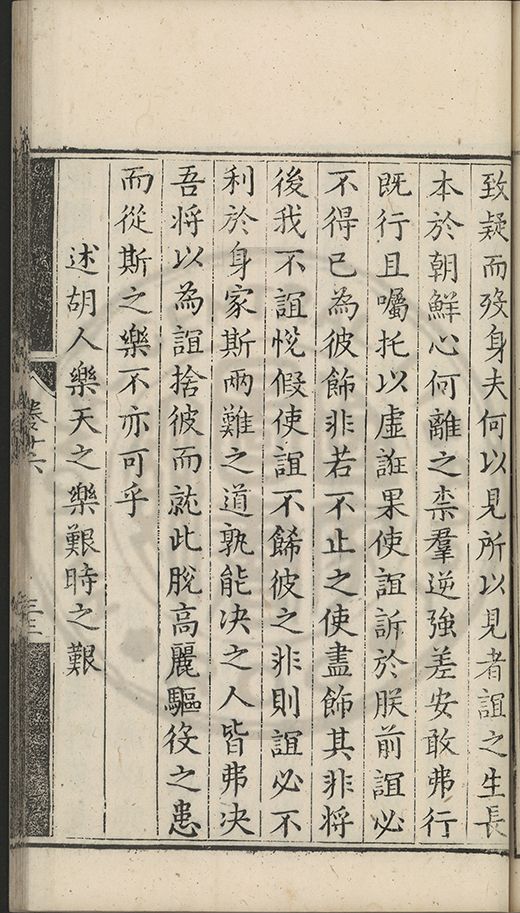 致疑而歿身夫何以見所以見者誼之生長
本於朝鮮心何離之柰羣逆強差安敢弗行
既行且囑托以虛誑果使誼訴於朕前誼必
不得已為彼飾非若不止之使盡飾其非將
後我不誼悅假使誼不餙彼之非則誼必不
利於身家斯兩難之道孰能决之人皆弗决
吾將以為誼捨彼而就此脫高麗驅役之患
而從斯之樂不亦可乎
述胡人樂天之樂艱時之艱
卷十六
三三